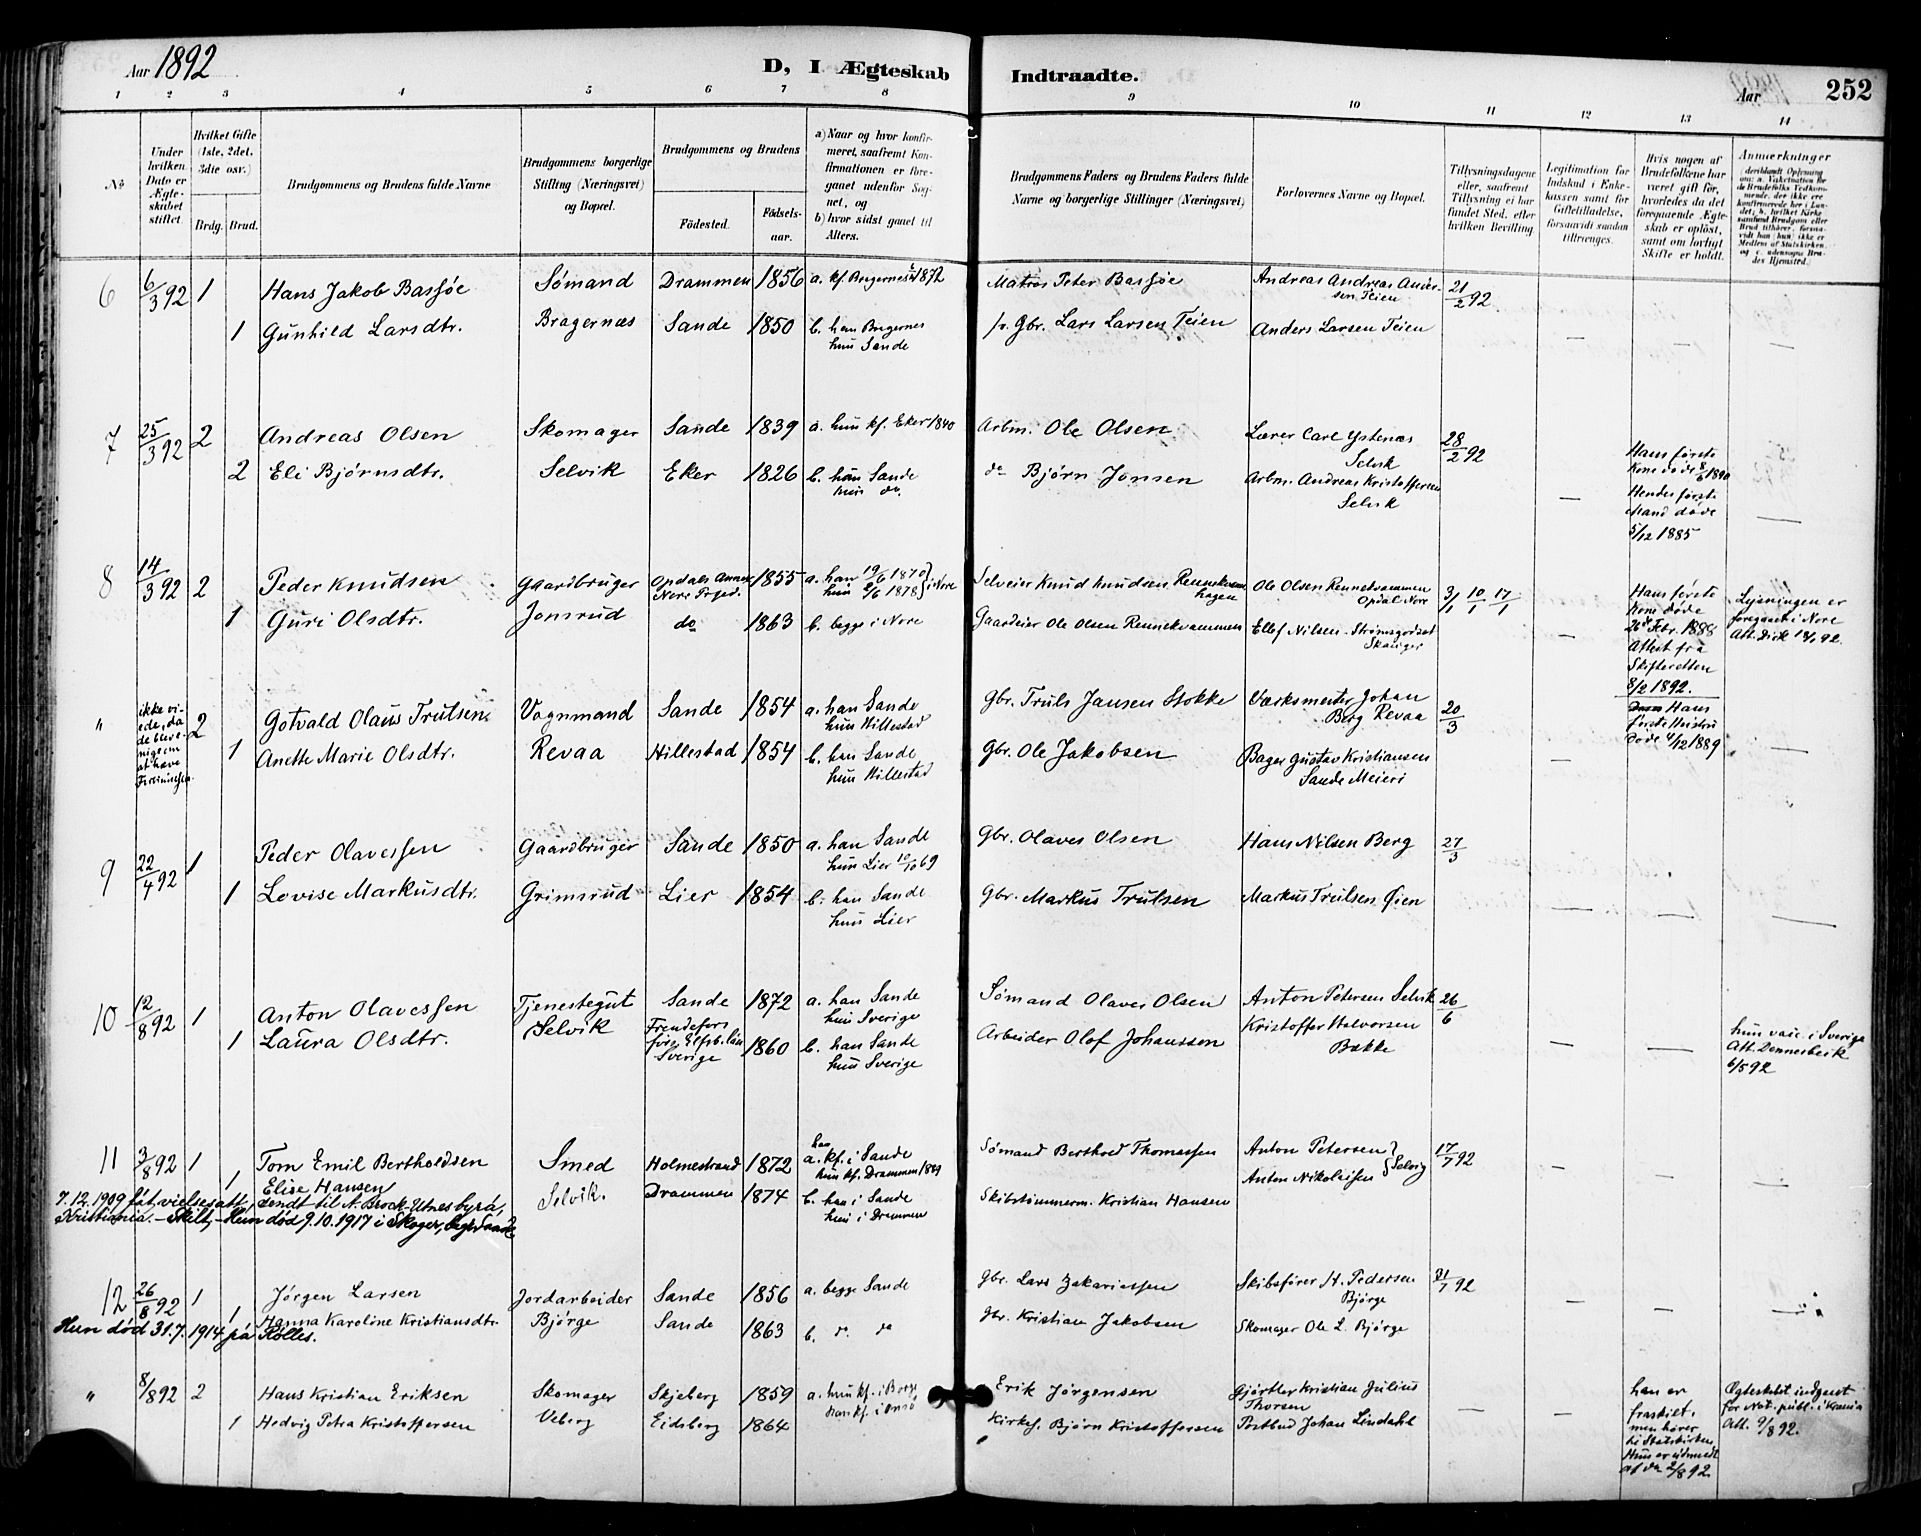 Aar 1892
D, I Ægteskab Indtraadte.
Aar
252
1 2 3 4 5 6 7 8 9 10 11 12 13 14
No
Under hvilken Dato er Ægteskabet stiftet.
Hvilket Gifte (1ste, 2det, 3die osv.)
Brdg. Brud.
Brudgommens og Brudens fulde Navne
Brudgommens borgerlige Stilling (Næringsvei) og Bopæl.
Brudgommens og Brudens
Fødested.
Fødselsaar.
a) Naar og hvor konfirmeret, saafremt Konfirmationen er foregaaet udenfor Sognet, og
b) hvor sidst gaaet til Alters.
Brudgommens Faders og Brudens Faders fulde Navne og borgerlige Stillinger (Næringsvei)
Forlovernes Navne og Bopæl.
Tillysningsdagene eller, saafremt Tillysning ei har fundet Sted, efter hvilken Bevilling
Legitimation for Indskud i Enkekassen samt for Giftetilladelse, forsaavidt saadan tiltrænges.
Hvis nogen af Brudefolkene har været gift før, hvorledes da det foregaaende Ægteskab er opløst, samt om lovligt Skifte er holdt.
Anmærkninger
6 6/3 92 1 Hans Jakob Bassøe Sømand Drammen 1856 a. kf. Bragernes 1872 Matros Peter Bassøe Andreas Andreas Andersen Teien 21/2 92
1 Gunhild Larsdtr. Bragernæs Sande 1850 b. han Bragernes Gbr. Lars Larsen Teien Anders Larsen Teien — — —
hun Sande
7 25/3 92 2 Andreas Olsen Skomager Sande 1839 a. hun kf. Eker 1840 Arbm. Ole Olsen Lærer Carl Ystenæs Selvik 28/2 92
2 Eli Bjørnsdtr. Selvik Eker 1826 b. han Sande do Bjørn Jonsen Arbm. Andreas Kristoffersen Selvik —
hun do.
Hans første
Kone døde 8/6 1890
Hendes første
Mand døde
5/12 1885
8 14/3 92 2 Peder Knudsen Gaardbruger Opdals Annex Nore Prgd. 1855 a. han 19/6 1870 Selveier Knud Knudsen Rennekvamshagen Ole Olsen Rennekvammen Opdal Nore 3/1 10/1 17/1
hun 2/6 1878 } i Nore
1 Guri Olsdtr. Jonsrud do 1863 b. begge i Nore Gaardeier Ole Olsen Rennekvammen Ellef Nilsen Strømsgodset Skauger —
Hans første
Kone døde
26de Febr. 1888
Attest fra
Skifteretten
8/2 1892.
Lysningen er
foregaaet i Nore
" ikke viede, da de bleve enige om at hæve Forbindelsen 2 Gotvald Olaus Trulsen Vognmand Sande 1854 a. han Sande Gbr. Truls Jansen Stokke Værksmester Johan Berg Revaa 20/3
hun Hillestad
1 Anette Marie Olsdtr. Revaa Hillestad 1854 b. han Sande Gbr. Ole Jakobsen Bager Gustav Kristiansen Sande Meieri — —
hun Hillestad
Hans
første Hustru
døde 4/12 1889
9 22/4 92 1 Peder Olavessen Gaardbruger Sande 1850 a. han Sande Gbr. Olaves Olsen Hans Nilsen Berg 27/3
hun Lier 10/10 69
1 Lovise Markusdtr. Grimsrud Lier 1854 b. han Sande Gbr. Markus Trulsen Markus Trulsen Øien — — —
hun Lier
10 12/8 92 1 Anton Olavessen Tjenestegut Sande 1872 a. han Sande Sømand Olaves Olsen Anton Petersen Selvik 26/6
hun Sverige
1 Laura Olsdtr. Selvik Frendefors förs. Elfsb. län Sverige 1860 b. han Sande Arbeider Olof Johanssen Kristoffer Halvorsen Bakke — —
hun Sverige
hun vacc. i Sverige
6/5 92
11 3/8 92 1 Tom Emil Bertholdsen Smed Holmestrand 1872 a. han kf. i Sande Sømand Berthod Thomassen Anton Petersen 17/7 92
hun kf. Drammen 1889
1 Elise Hansen Selvik. Drammen 1874 b. han i Sande Skibstømmerm. Kristian Hansen Anton Nikolaisen } Selvig — — —
hun i Drammen
7.12.1909 vielsesatt. sendt til A. Brock-Utnes byrå,
Kristiania. — Skilt. — Hun død 9.10.1917 i Skoger,
12 26/8 92 1 Jørgen Larsen Jordarbeider Sande 1856 a. begge Sande Gbr. Lars Zakariassen Skibsfører H. Pedersen Bjørge 31/7 92
1 Hanna Karoline Kristiansdtr. Bjørge Sande 1863 b. do do Gbr. Kristian Jakobsen Skomager Ole L. Bjørge — — —
Hun død 31.7.1914 på Kolles.
" 8/8 92 2 Hans Kristian Eriksen Skomager Skjeberg 1859 a. hun kf. i Borge Erik Jørgensen Gjørtler Kristian Julius Thorsen — —
1 Hedvig Petra Kristoffersen Veberg Eidsberg 1864 han kf. i Onsø Kirkes. Bjørn Kristoffersen Postbud Johan Lindahl
han er
fraskilt,
men hører
til Statskirken
Hun er udmeldt
af den 2/8 92.
Ægteskabet indgaaet
for Not. publ. i Krania
Att. 9/8 92.